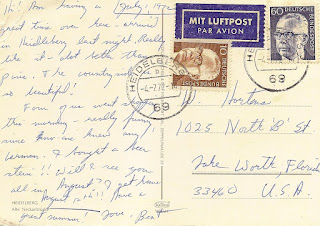 Hi! Am having a July 1, 1972
great time over here - arrived
in Heidelberg last night. Really
like it - lot better than
- the country side
is beautiful!
Four of us went shopping
this morning - really funny
since know one knew any
German. I bought a beer
stein!! Will see you
all in August? I get home
August 12th!! Have a
great summer! Love, Brat
HEIDELBERG
Alte Neckarbrücke
MIT LUFTPOST
PAR AVION
60
DEUTSCHE BUNDESPOST
10
DEUTSCHE BUNDESPOST
HEIDELBERG
-4.-7.72
69
HEIDELB
69
Hortons
1025 North "B" St.
Lake Worth, Florida
33460 U.S.A.